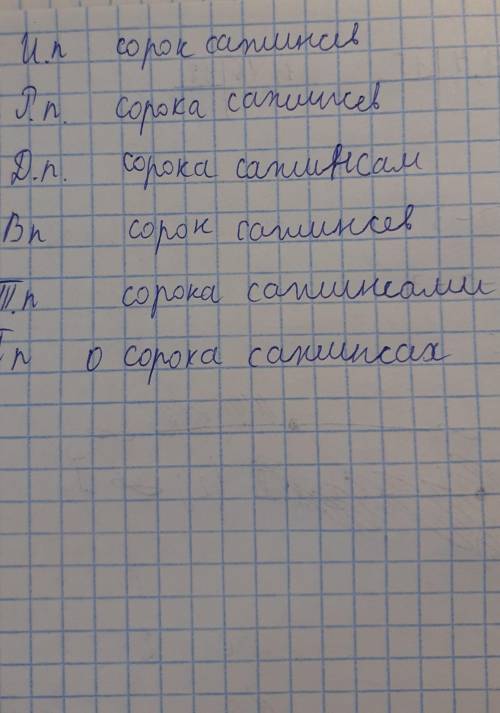 И.п сорок саженцев
Р.п. сорока саженцев
Д.п. сорока саженцам
Вп сорок саженцев
Т.п сорока саженцами
п о сорока саженцах